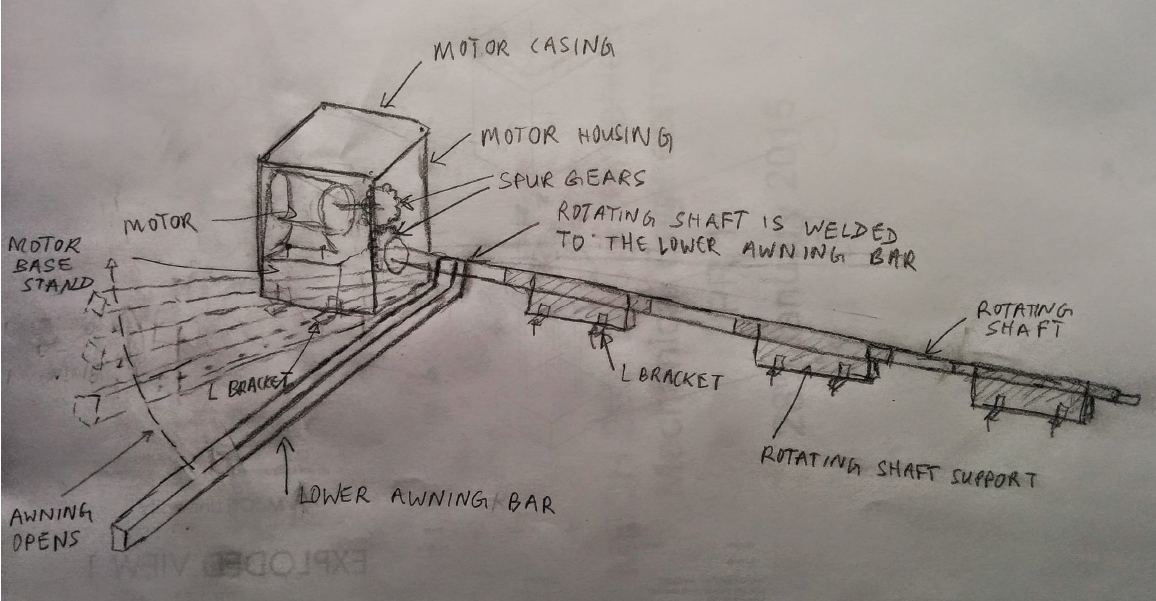 MOTOR CASING
MOTOR HOUSING
SPUR GEARS
MOTOR
ROTATING SHAFT IS WELDED
TO THE LOWER AWNING BAR
MOTOR
BASE
STAND
ROTATING
SHAFT
L BRACKET
L BRACKET
ROTATING SHAFT SUPPORT
LOWER AWNING BAR
AWNING
OPENS
EXPLODED VIEW 1